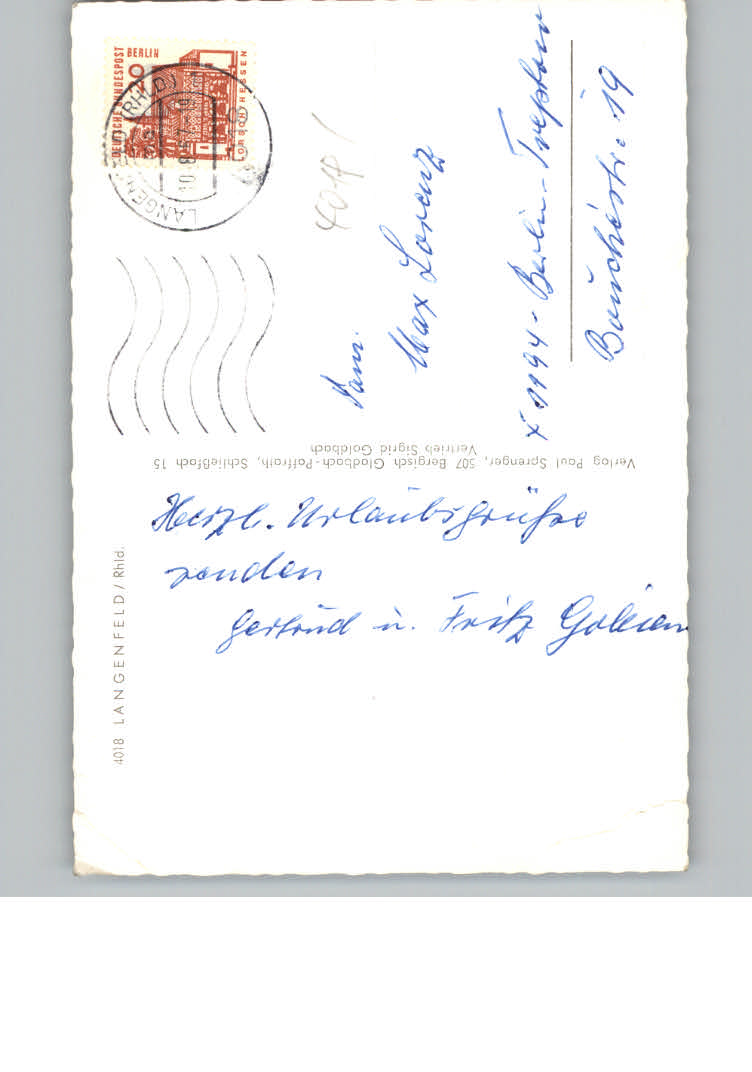 DEUTSCHE BUNDESPOST BERLIN
LORSCH/HESSEN
LANGENFELD (RHLD)
4018
Fam.
Max Lorenz
X 1194 - Berlin - Treptow
Bouchéstr. 19
Verlag Paul Sprenger, 507 Bergisch Gladbach-Paffrath, Schließfach 15
Vertrieb Sigrid Goldbach
4018 LANGENFELD / Rhld.
Herzl. Urlaubsgrüße
senden
Gertrud u. Fritz